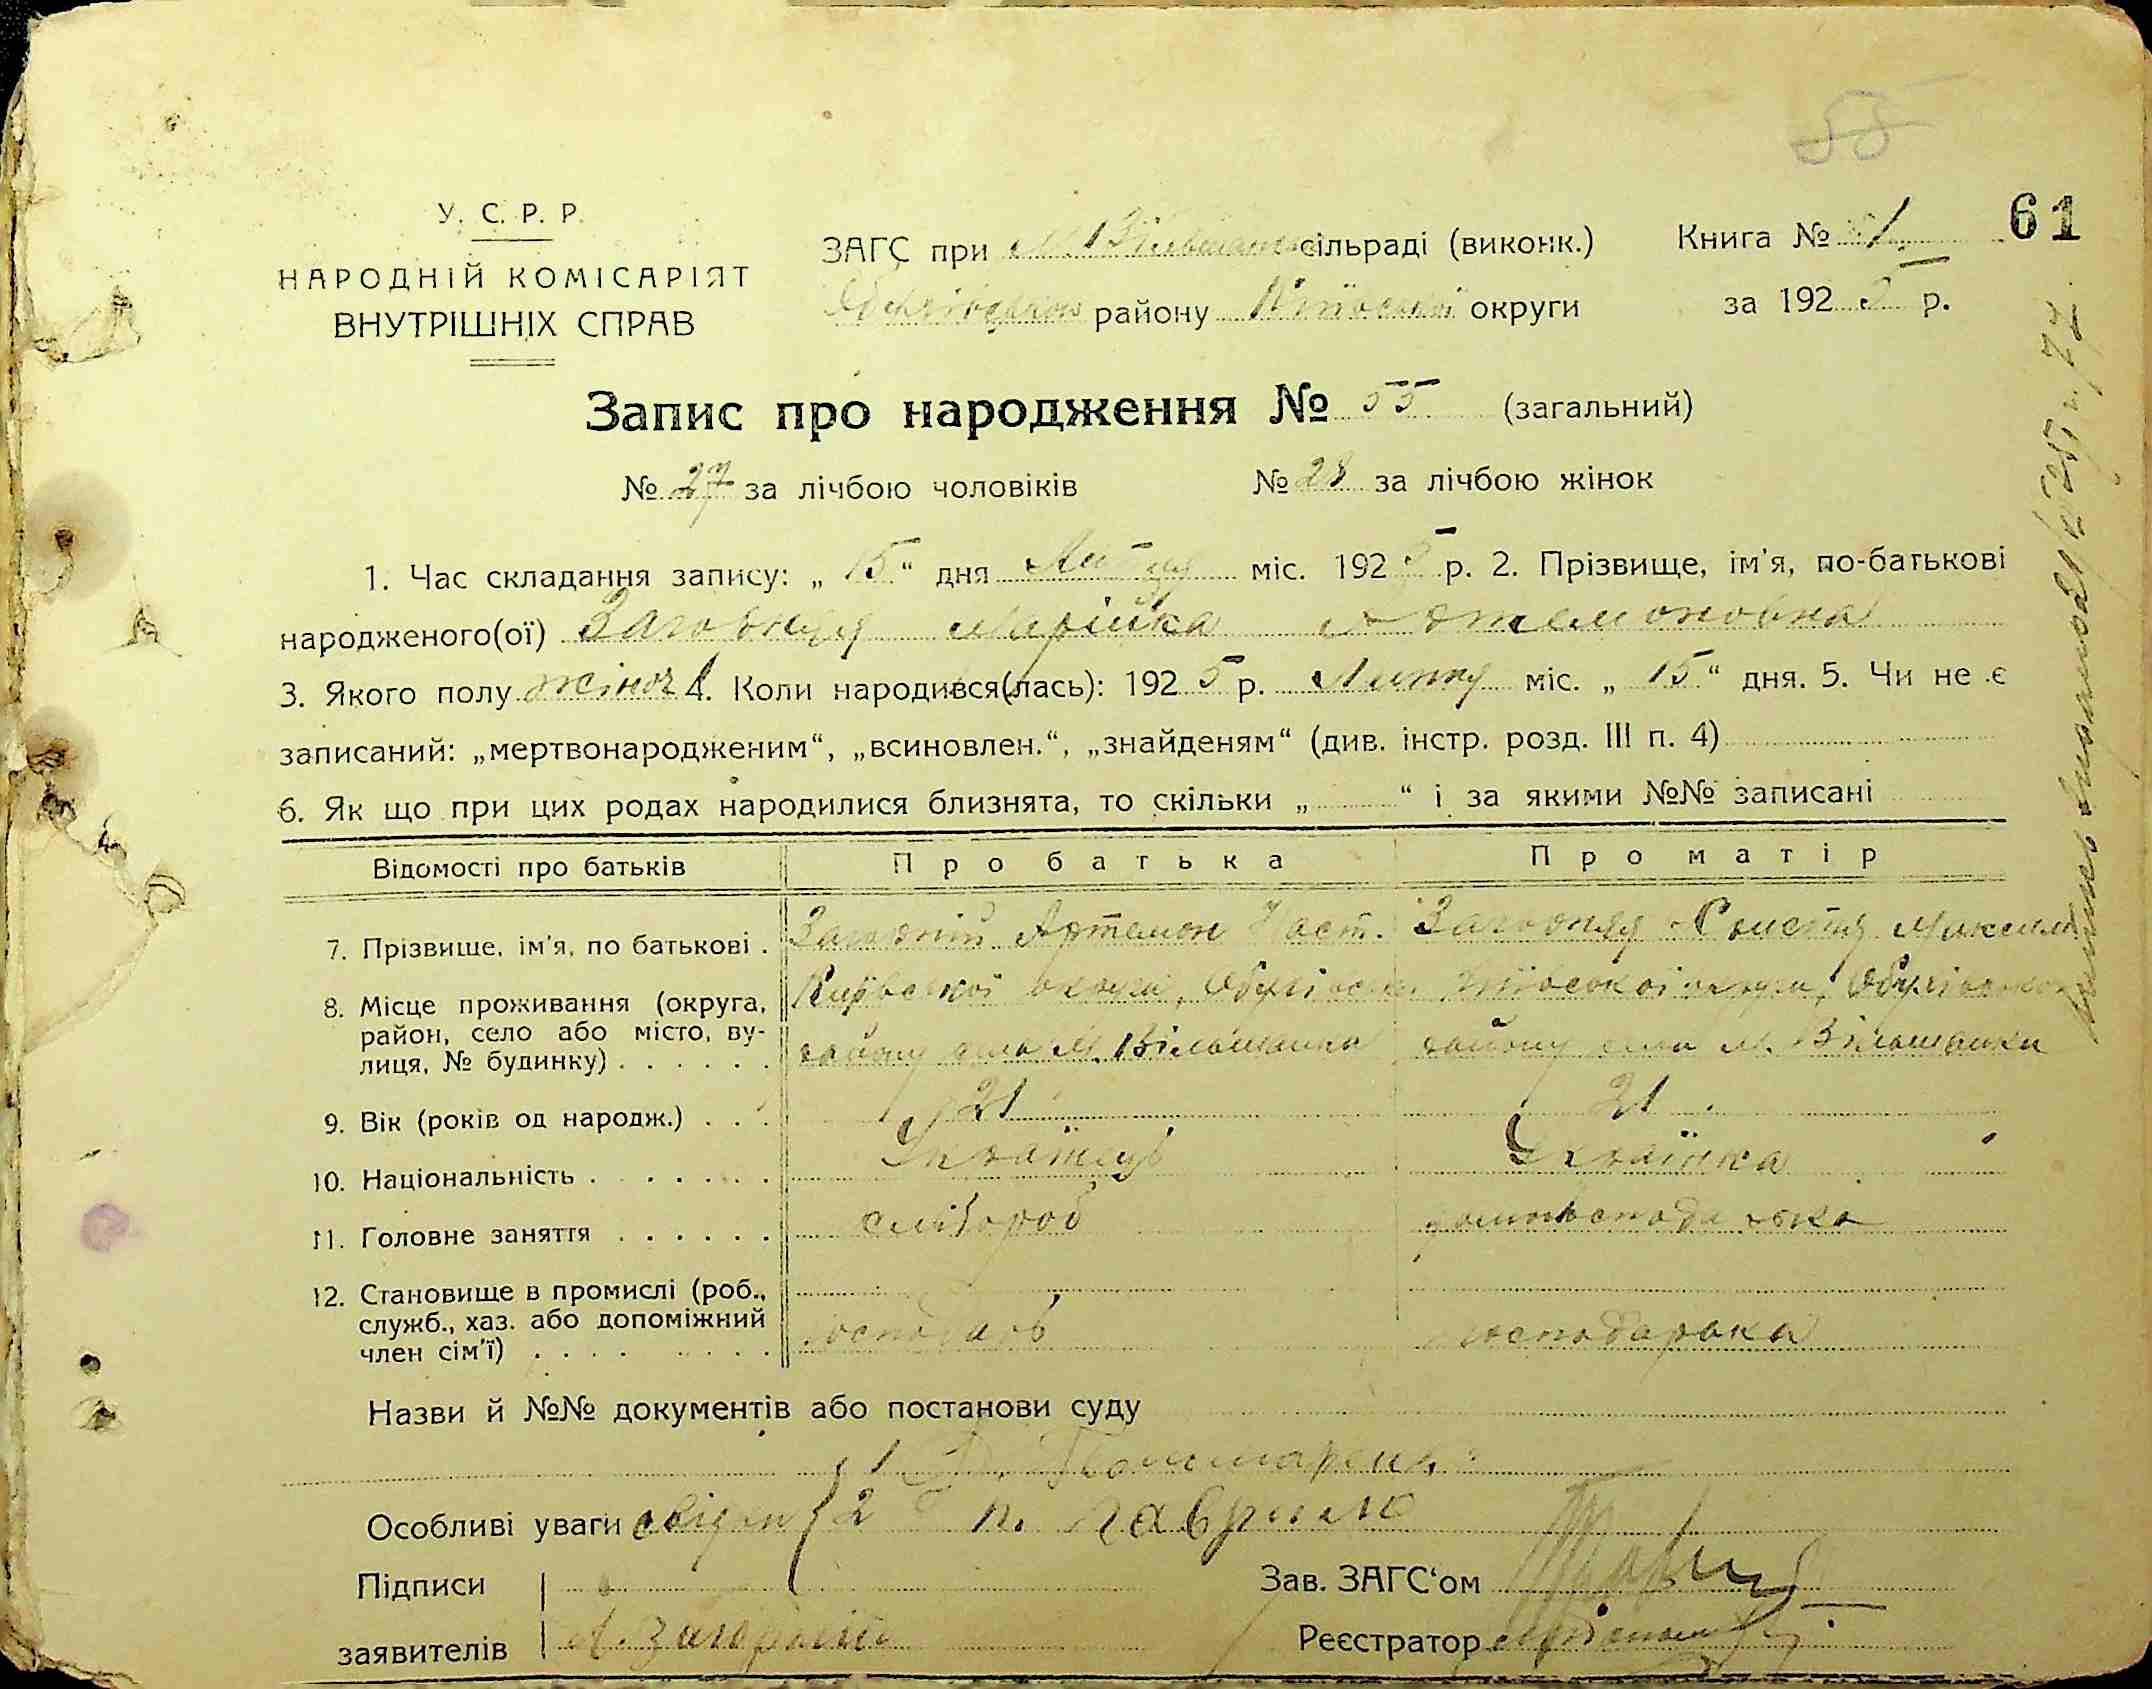 55
У. С. Р. Р.
НАРОДНІЙ КОМІСАРІЯТ
ВНУТРІШНІХ СПРАВ
ЗАГС при М. Вільшанс. сільраді (виконк.)
району Київської округи
Книга № 1.
61
за 192 5 р.
Запис про народження № 55 (загальний)
№ 27 за лічбою чоловіків № 28 за лічбою жінок
1. Час складання запису: „ 15 “ дня міс. 192 5 р. 2. Прізвище, ім'я, по-батькові
народженого(ої) Загородняя Марійка Артемоновна
3. Якого полу жіноч 4. Коли народився(лась): 192 5 р. Липня міс. „ 15 “ дня. 5. Чи не є
записаний: „мертвонародженим“, „всиновлен.“, „знайденям“ (див. інстр. розд. III п. 4)
6. Як що при цих родах народилися близнята, то скільки „ “ і за якими №№ записані
Відомості про батьків Про батька Про матір
7. Прізвище, ім'я, по батькові . Артемон Наст. Христя Максим
8. Місце проживання (округа, Київської округи, Обухівськ. Київської округи, Обухівського
район, село або місто, ву- району села М. Вільшанка району села М. Вільшанки
лиця, № будинку) . . . . . .
9. Вік (років од народж.) . . . 21 21
10. Національність . . . . . . . Українець Українка
11. Головне заняття . . . . . . хлібороб домогосподарка
12. Становище в промислі (роб.,
служб., хаз. або допоміжний господарь господарька
член сім'ї) . . . . . . . .
Назви й №№ документів або постанови суду
1
Особливі уваги свідки 2 п. гаврило
Підписи
Зав. ЗАГС'ом
заявителів А. Загородній
Реєстратор